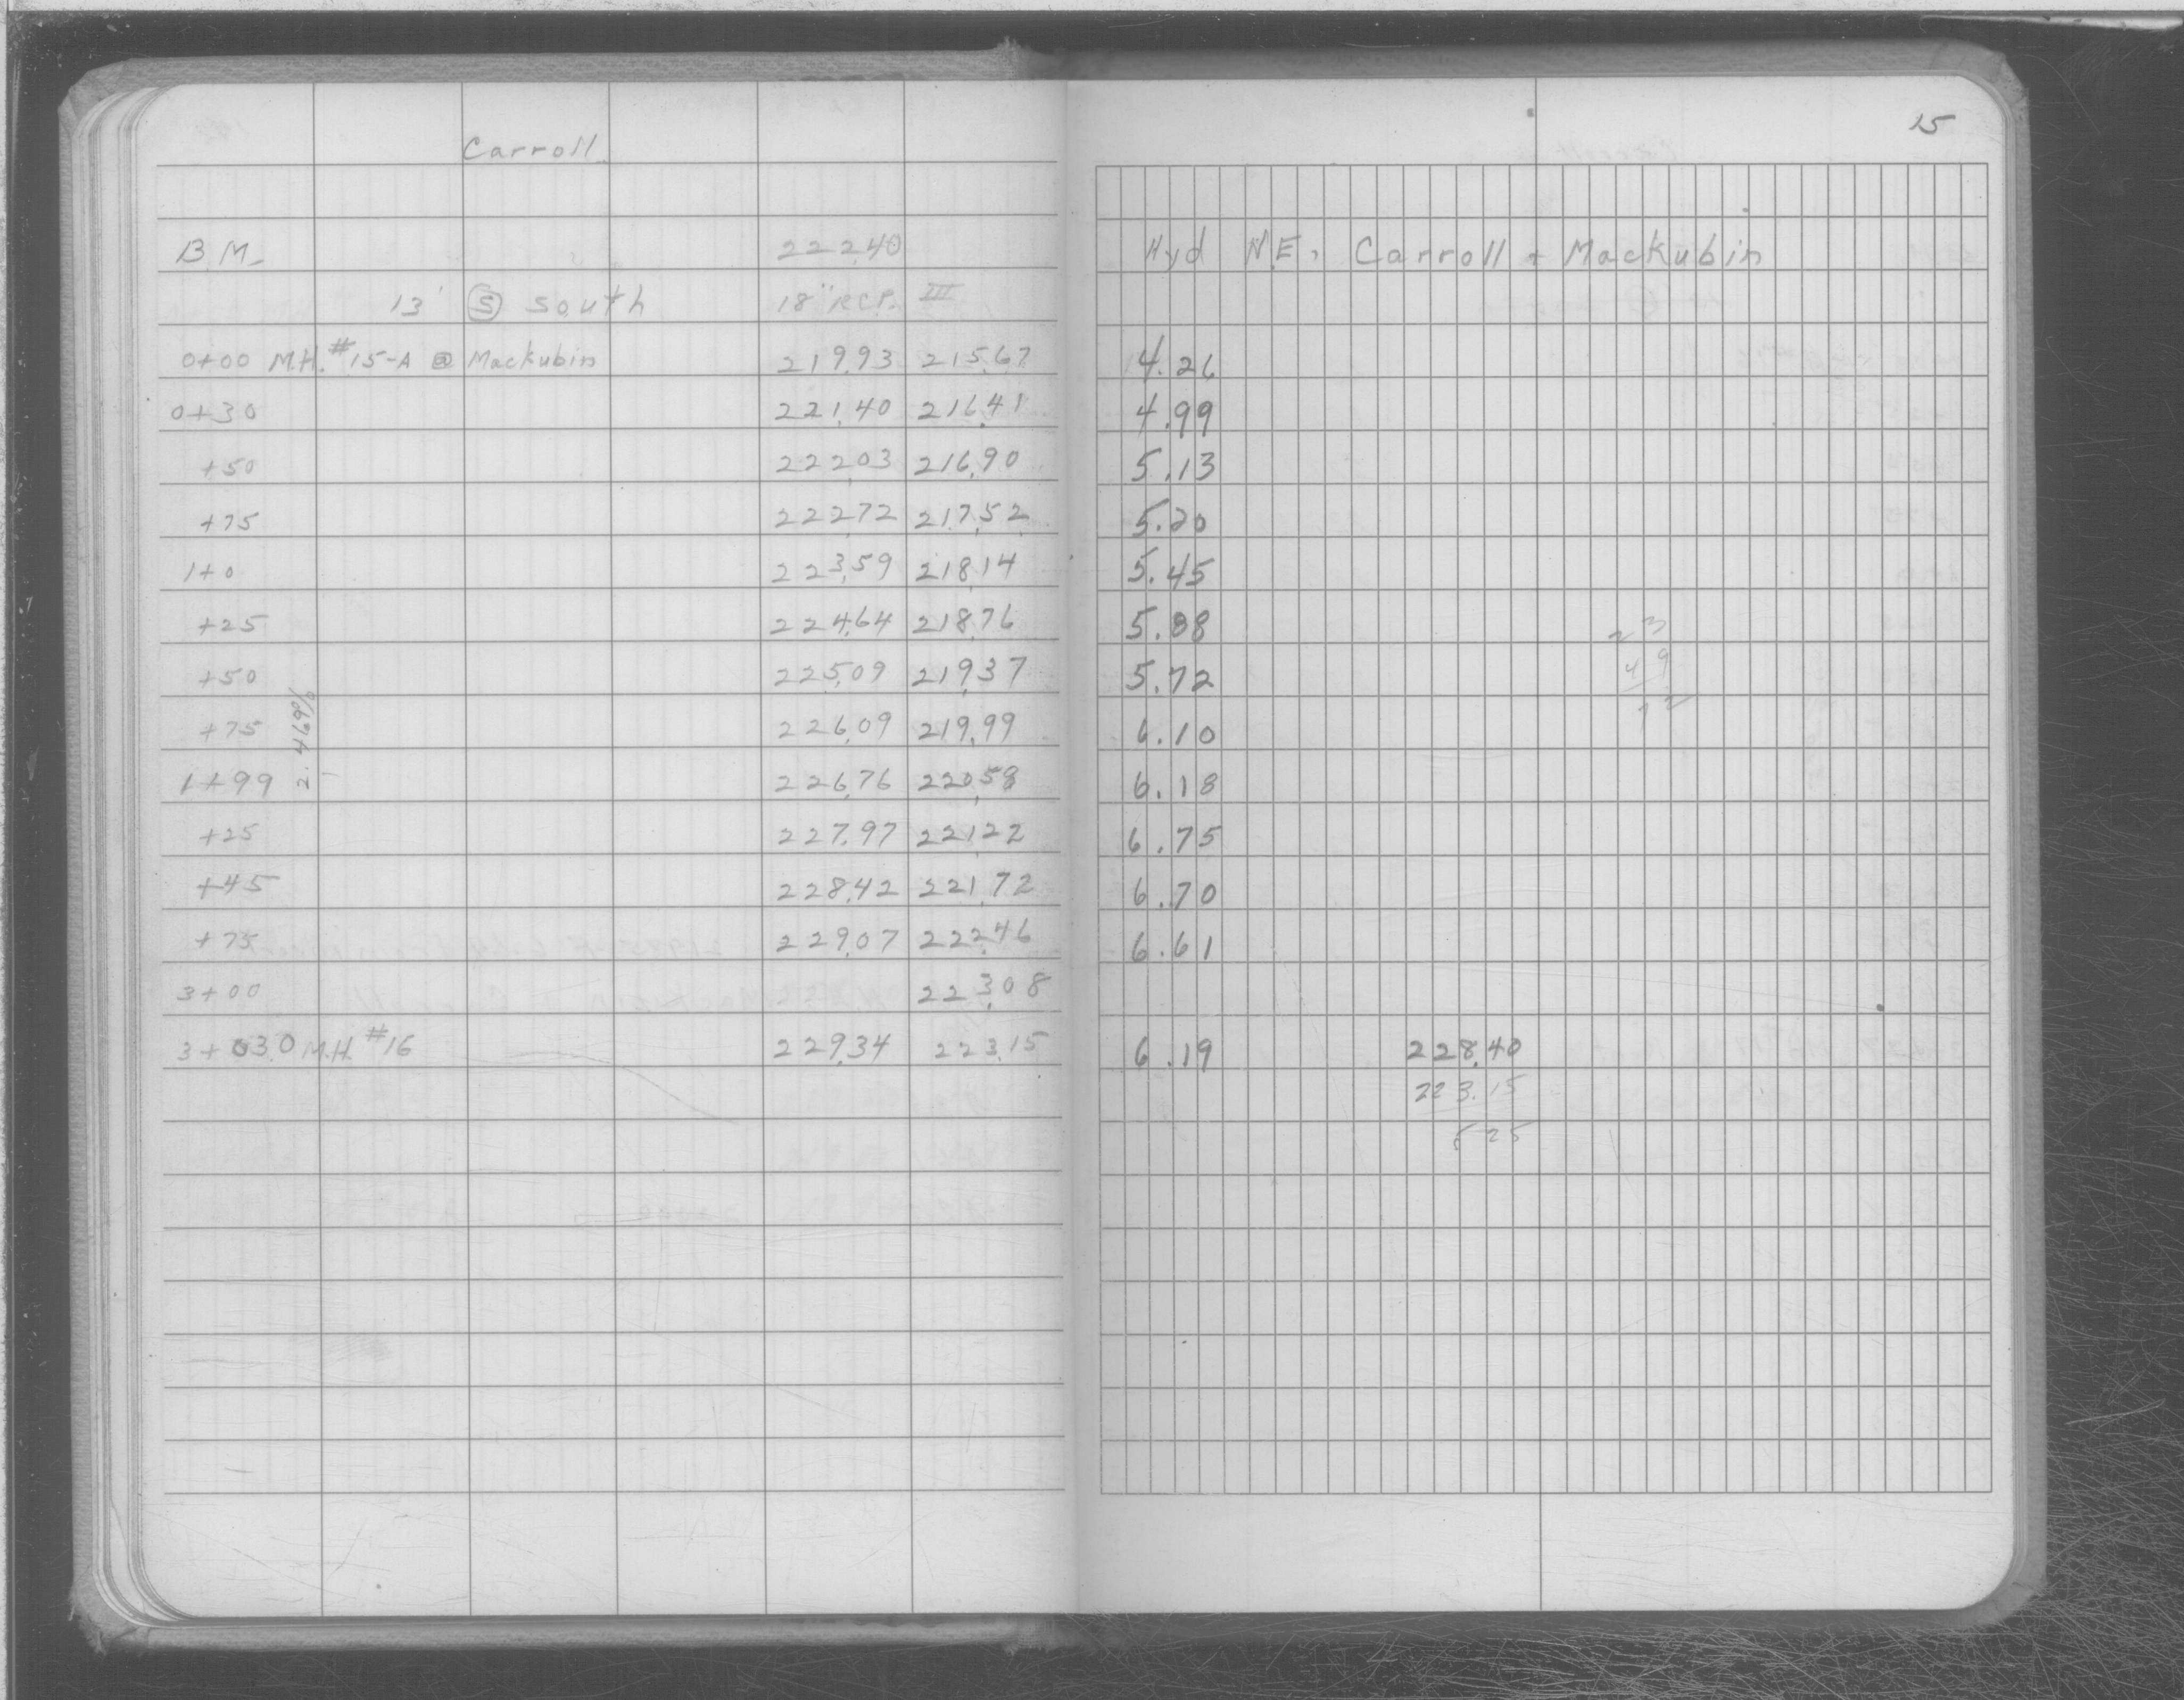 15
Carroll
B.M. 222.40 Hyd N.E. Carroll + Mackubin
13' Ⓢ South 18" R.C.P. III
0+00 M.H. #15-A @ Mackubin 219.93 215.67 4.26
0+30 221.40 216.41 4.99
+50 222.03 216.90 5.13
+75 222.72 217.52 5.20
1+0 223.59 218.14 5.45
+25 224.64 218.76 5.88
+50 225.09 219.37 5.72
+75 226.09 219.99 6.10
2.469%
1+99 226.76 220.58 6.18
+25 227.97 221.22 6.75
+45 228.42 221.72 6.70
+75 229.07 222.46 6.61
3+00 223.08
3+03.0 M.H. #16 229.34 223.15 6.19 228.40
223.15
5 25